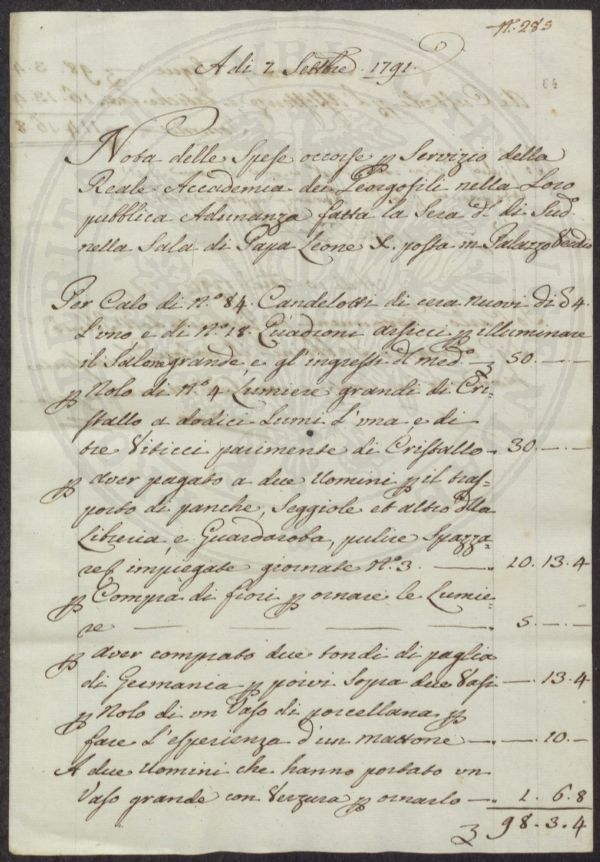 N.° 283
A di 7. Settbre 1791.
Nota delle Spese occorse p Servizio della
Reale Accademia dei Georgofili nella Loro
pubblica Adunanza fatta la Sera d. di Sud.
nella Sala di Papa Leone X. posta in Palazzo Vecchio
Per Calo di N.° 84. Candelotti di cera nuovi di 4.
L'uno e di N.° 18. Quadroni p illuminare
il Salone grande, e gl'ingressi d. med.° 50. — . —
p Nolo di N.° 4. Lumiere grandi di Cri-
stallo a dodici Lumi L'una e di
tre Viticci parimente di Cristallo . 30 — . —
p aver pagato a due Uomini p il tras-
porto di panche, Seggiole et altro dlla
Libreria, e Guardaroba, pulire Spazza-
re impiegate giornate N.° 3. — 10. 13. 4
p Compra di fiori p ornare le Lumie-
re — — — 5. — . —
p aver comprato due tondi di paglia
di Germania p porvi Sopra due Vasi — . 13. 4
p Nolo di un Vaso di porcellana p
fare L'esperienza d'un mattone — . — . 10. —
A due Uomini che hanno portato un
Vaso grande con Verzura p ornarlo — . 1. 6. 8
98. 3. 4